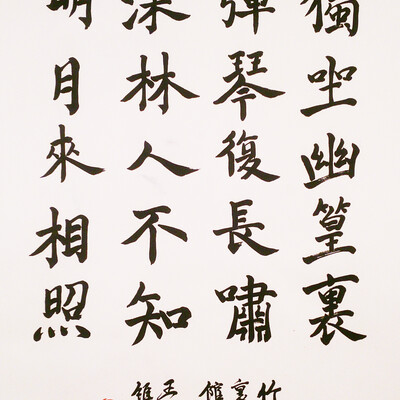 獨坐幽篁裏
彈琴復長嘯
深林人不知
明月來相照
竹裏館
王維